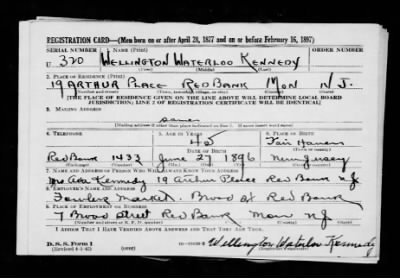 REGISTRATION CARD—(Men born on or after April 28, 1877 and on or before February 16, 1897)
SERIAL NUMBER 1. NAME (Print) ORDER NUMBER
U 370 WELLINGTON WATERLOO KENNEDY
(First) (Middle) (Last)
2. PLACE OF RESIDENCE (Print)
19 ARTHUR PLACE RED BANK MON N J.
(Number and street) (Town, township, village, or city) (County) (State)
[THE PLACE OF RESIDENCE GIVEN ON THE LINE ABOVE WILL DETERMINE LOCAL BOARD
JURISDICTION; LINE 2 OF REGISTRATION CERTIFICATE WILL BE IDENTICAL]
3. MAILING ADDRESS
same
[Mailing address if other than place indicated on line 2. If same insert word same]
4. TELEPHONE 5. AGE IN YEARS 6. PLACE OF BIRTH
45 Fair Haven
DATE OF BIRTH (Town or county)
Red Bank 1433 June 27 1896 New Jersey
(Exchange) (Number) (Mo.) (Day) (Yr.) (State or country)
7. NAME AND ADDRESS OF PERSON WHO WILL ALWAYS KNOW YOUR ADDRESS
Mrs Kennedy 19 Arthur Place Red Bank NJ
8. EMPLOYER'S NAME AND ADDRESS
Market. Broad St Red Bank
9. PLACE OF EMPLOYMENT OR BUSINESS
7 Broad Street Red Bank Mon NJ
(Number and street or R. F. D. number) (Town) (County) (State)
I AFFIRM THAT I HAVE VERIFIED ABOVE ANSWERS AND THAT THEY ARE TRUE.
D. S. S. Form 1
(Revised 4-1-42) (over) Wellington Waterloo Kennedy
(Registrant's signature)